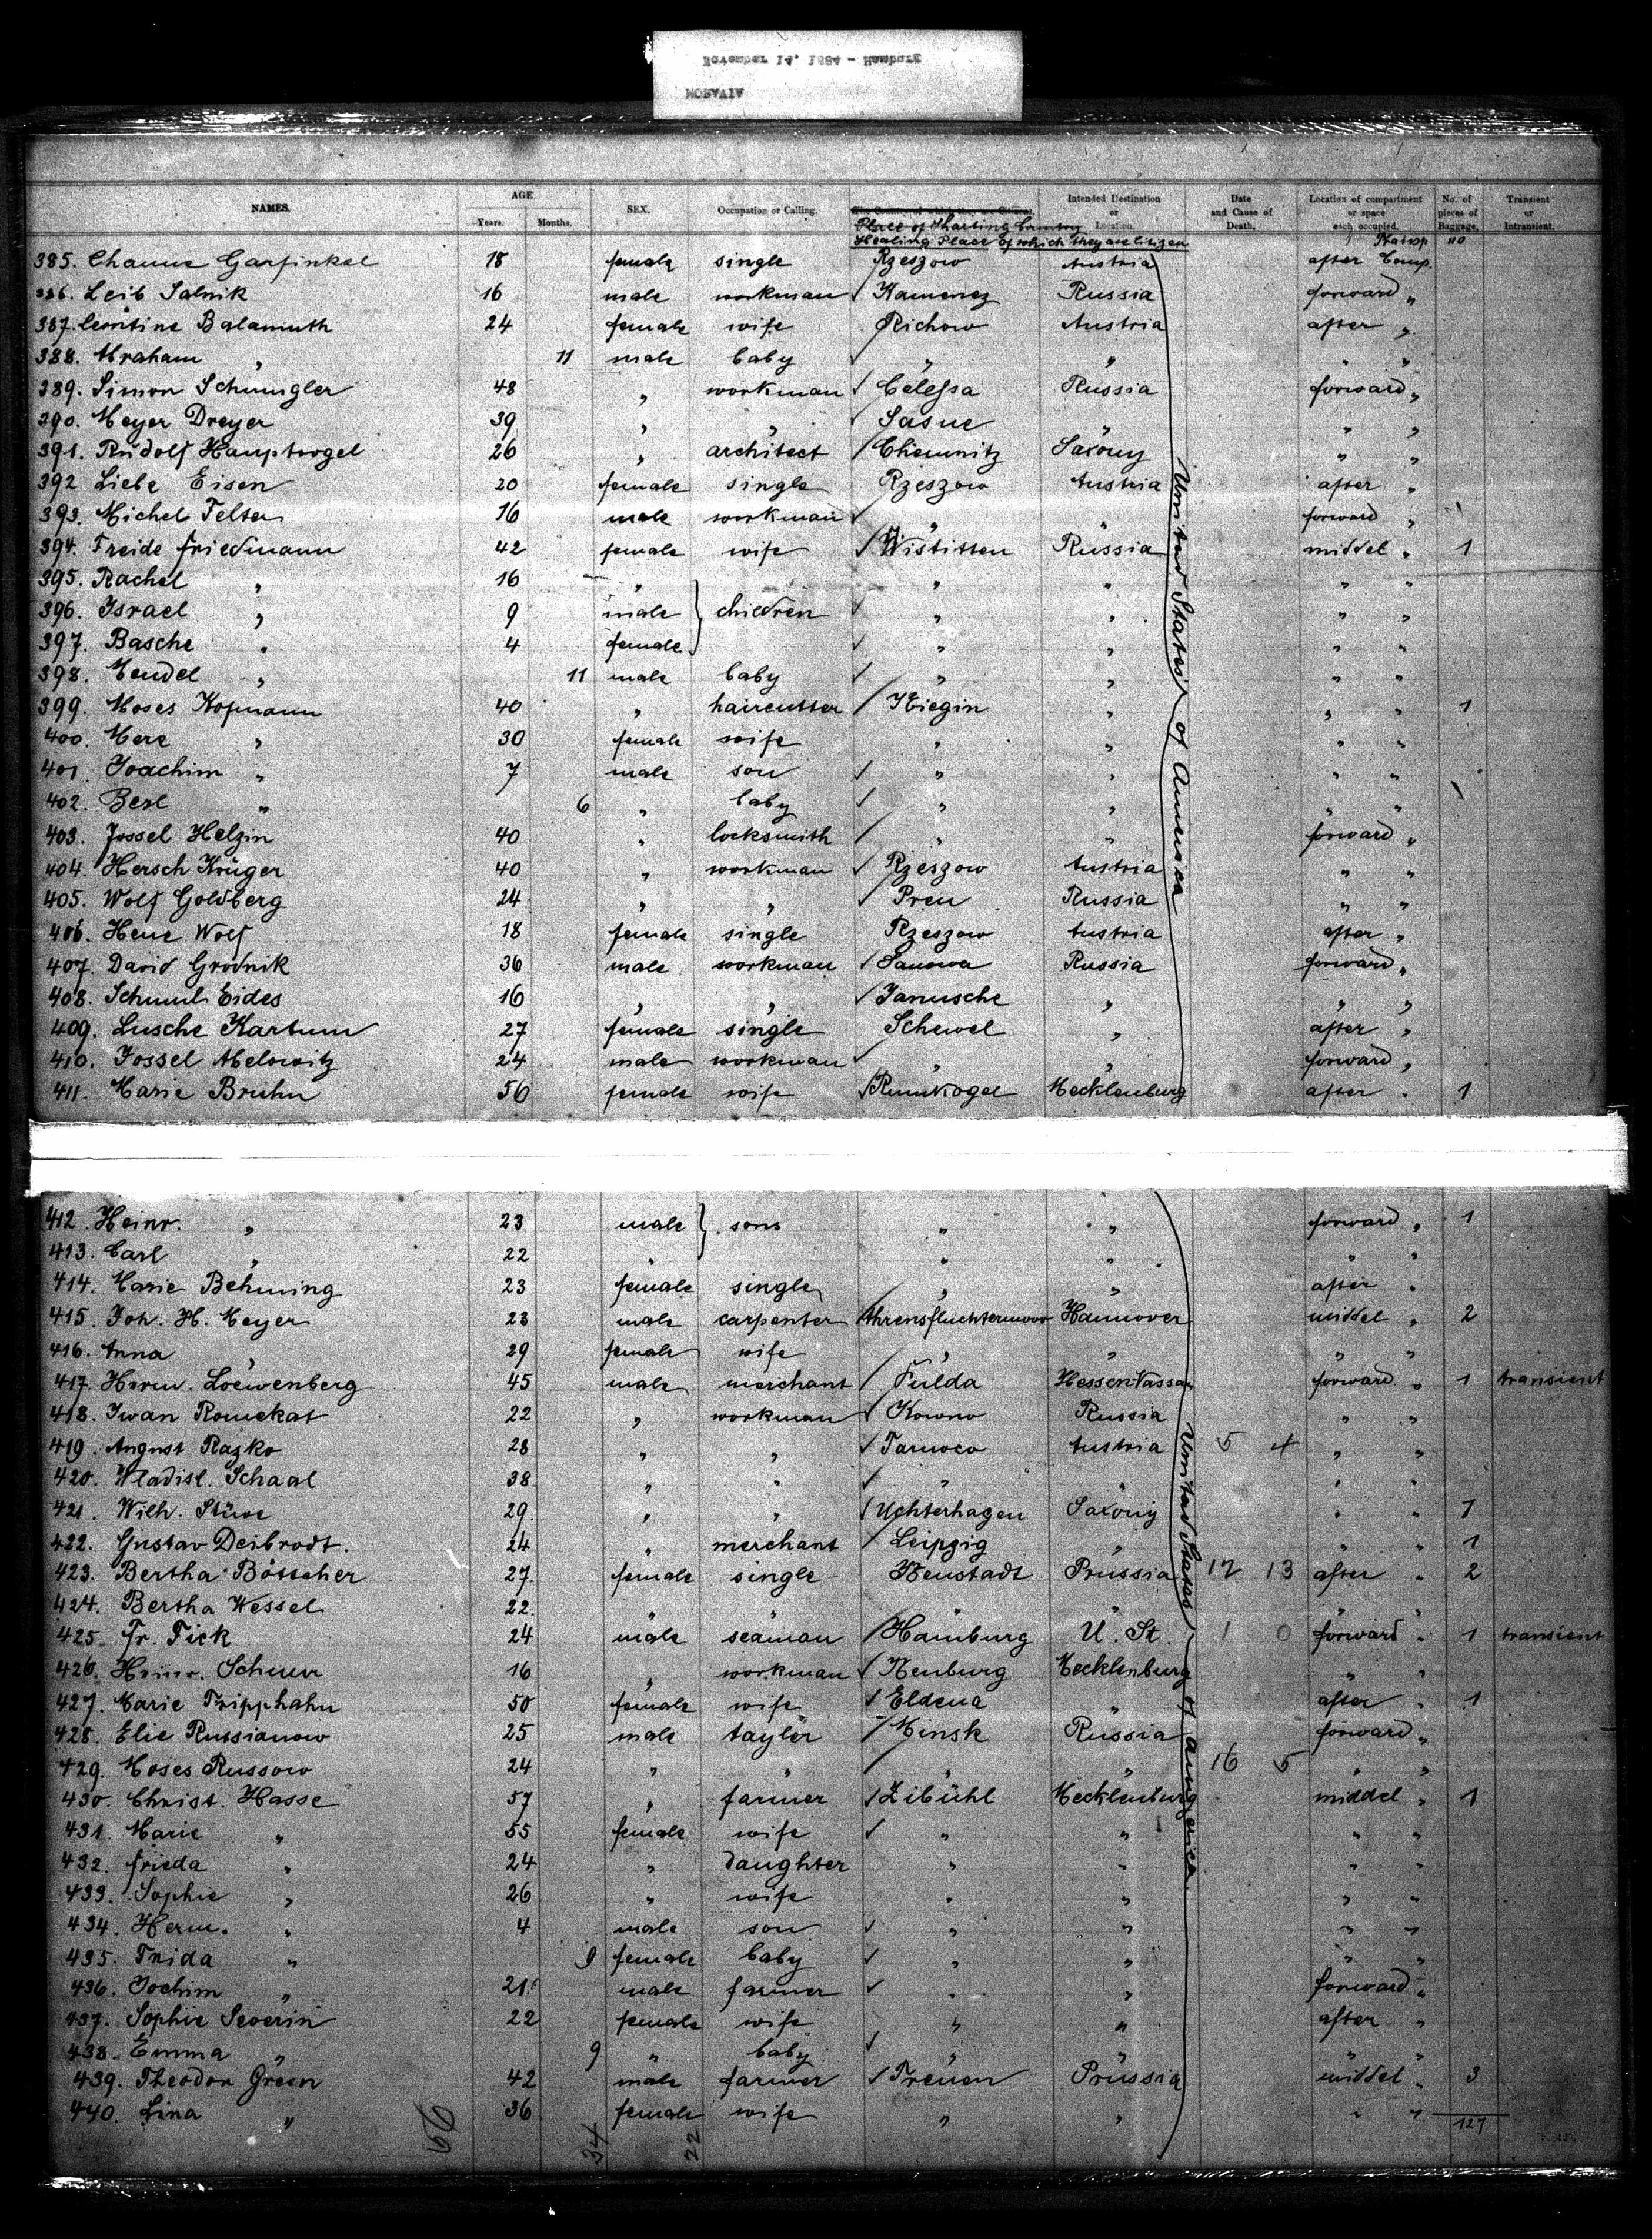 November 14, 1884 - Hamburg
MORAVIA
NAMES. AGE Years. Months. SEX. Occupation or Calling. Intended Destination or Location. Date and Cause of Death. Location of compartment or space each occupied. No. of pieces of Baggage. Transient or Intransient.
Place of Starting Country
Place of which they are citizen
385. Channe Garfinkel 18 female single Rzeszow Austria after Comp.
386. Leib Salnik 16 male workman Kamenez Russia forward "
387. Leontine Balamuth 24 female wife Richow Austria after "
388. Abraham " 11 male baby " " " "
389. Simon Schmugler 48 " workman Russia forward "
390. Meyer Dreyer 39 " " Sasne " " "
391. Rudolf Hauptvogel 26 " architect Chemnitz Saxony " "
392 Liebe Eisen 20 female single Rzeszow Austria after "
393. Michel Felter 16 male workman " " forward "
394. Freide Friedmann 42 female wife Wistitten Russia middel " 1
395. Rachel " 16 " " " " "
396. Israel " 9 male children " " " "
397. Basche " 4 female " " " "
398. Mendel " 11 male baby " " " "
399. Moses Kopmann 40 " haircutter " " " 1
400. Mere " 30 female wife " " " "
401. Joachim " 7 male son " " " "
402. Berl " 6 " baby " " " "
403. Jossel Helzin 40 " locksmith " " forward "
404. Hersch Krüger 40 " workman Rzeszow Austria " "
405. Wolf Goldberg 24 " " Pren Russia " "
406. Hene Wolf 18 female single Rzeszow Austria after "
407. David Grodnik 36 male workman Janowa Russia forward "
408. Schmul Eides 16 " " Janusche " " "
409. Lusche Kartum 27 female single Schewel " after "
410. Jossel Abelowitz 24 male workman " " forward "
411. Marie Bruhn 50 female wife Rumkogel Mecklenburg after " 1
412. Heinr. " 23 male sons " " forward " 1
413. Carl " 22 " " " " "
414. Marie Behming 23 female single " " after "
415. Joh. H. Meyer 23 male carpenter Ahrensfluchtermoor Hannover middel " 2
416. Anna " 29 female wife " " " "
417. Herm. Loewenberg 45 male merchant Fulda Hessen-Nassau forward " 1 transient
418. Iwan Romekat 22 " workman Kowno Russia " "
419. August Razko 28 " " Tarnow Austria 5 4 " "
420. Wladisl. Schaal 38 " " " " " "
421. Wilh. Stüwe 29 " " Uchterhagen Saxony " " 1
422. Gustav Deibrodt. 24 " merchant Leipzig " " " 1
423. Bertha Bötscher 27 female single Neustadt Prussia 12 13 after " 2
424. Bertha Wessel 22 " " " " " "
425. Fr. Fick 24 male seaman Hamburg U. St. 1 0 forward " 1 transient
426. Heinr. Schurr 16 " workman Neuburg Mecklenburg " "
427. Marie Tripphahn 50 female wife Eldena " after " 1
428. Elie Russianow 25 male taylor Minsk Russia forward "
429. Moses Russow 24 " " " " 16 5 " "
430. Christ. Hasse 57 " farmer Zibühl Mecklenburg middel " 1
431. Marie " 55 female wife " " " "
432. Frieda " 24 " daughter " " " "
433. Sophie " 26 " wife " " " "
434. Herm. " 4 male son " " " "
435. Frida " 9 female baby " " " "
436. Jochim " 21 male farmer " " forward "
437. Sophie Severin 22 female wife " " after "
438. Emma " 9 " baby " " " "
439. Theodor Green 42 male farmer Treuen Prussia middel " 3
440. Lina " 36 female wife " " " "
127
United States of America
United States of America
34 22